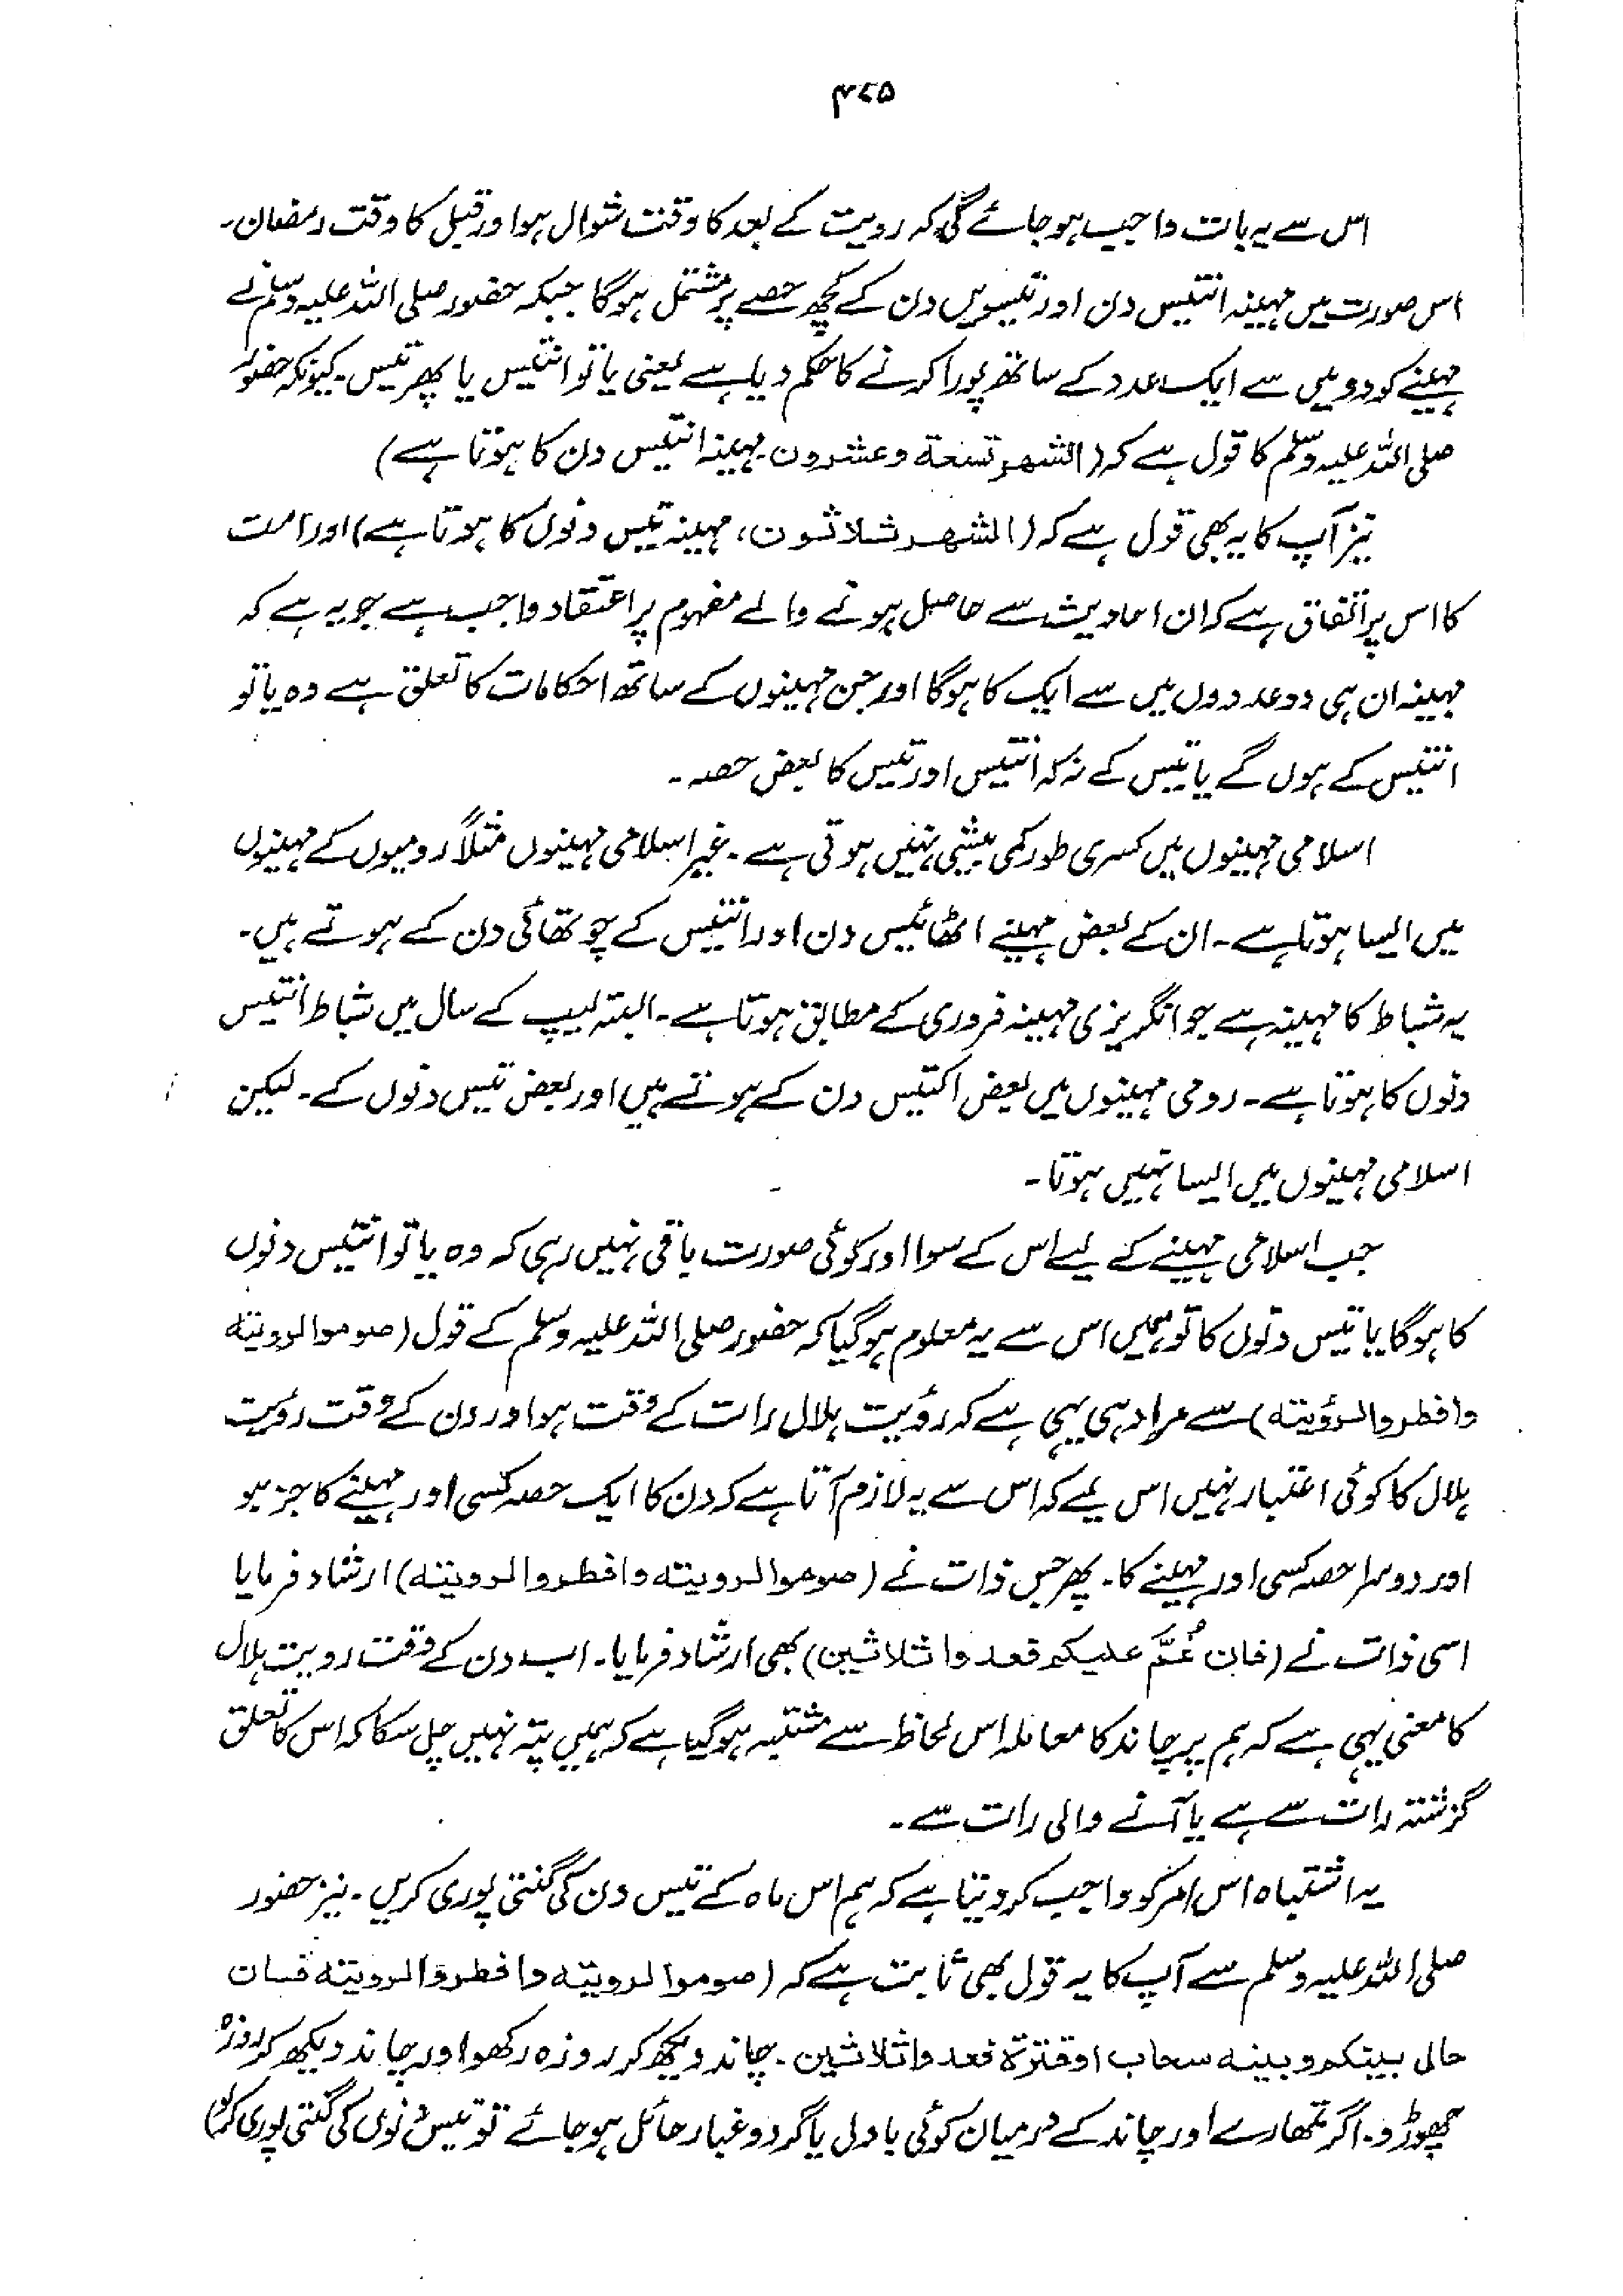 ۴۷۵
اس سے یہ بات واجب ہو جائے گی کہ رویت کے بعد کا وقت شوال ہو اور قبل کا وقت رمضان۔
اس صورت میں مہینہ انتیس دن اور تیسویں دن کے کچھ حصے پر مشتمل ہوگا جبکہ حضور صلی اللہ علیہ وسلم نے
مہینے کو دو میں سے ایک عدد کے ساتھ پورا کرنے کا حکم دیا ہے یعنی یا تو انتیس یا پھر تیس۔ کیونکہ حضور
صلی اللہ علیہ وسلم کا قول ہے کہ (الشھر تسعة وعشرون۔ مہینہ انتیس دن کا ہوتا ہے)
نیز آپ کا یہ بھی قول ہے کہ (الشھر ثلاثون، مہینہ تیس دنوں کا ہوتا ہے) اور امت
کا اس پر اتفاق ہے کہ ان احادیث سے حاصل ہونے والے مفہوم پر اعتقاد واجب ہے جو یہ ہے کہ
مہینہ ان ہی دو عددوں میں سے ایک کا ہوگا اور جن مہینوں کے ساتھ احکامات کا تعلق ہے وہ یا تو
انتیس کے ہوں گے یا تیس کے نہ کہ انتیس اور تیس کا بعض حصہ۔
اسلامی مہینوں میں کسری طور کمی بیشی نہیں ہوتی ہے۔ غیر اسلامی مہینوں مثلاً رومیوں کے مہینوں
میں ایسا ہوتا ہے۔ ان کے بعض مہینے اٹھائیس دن اور انتیس کے چوتھائی دن کے ہوتے ہیں۔
یہ شباط کا مہینہ ہے جو انگریزی مہینہ فروری کے مطابق ہوتا ہے۔ البتہ لیپ کے سال میں شباط انتیس
دنوں کا ہوتا ہے۔ رومی مہینوں میں بعض اکتیس دن کے ہوتے ہیں اور بعض تیس دنوں کے۔ لیکن
اسلامی مہینوں میں ایسا نہیں ہوتا۔
جب اسلامی مہینے کے لیے اس کے سوا اور کوئی صورت باقی نہیں رہی کہ وہ یا تو انتیس دنوں
کا ہوگا یا تیس دنوں کا تو ہمیں اس سے یہ معلوم ہو گیا کہ حضور صلی اللہ علیہ وسلم کے قول (صوموا لرویته
وافطروا لرؤیته) سے مراد ہی یہی ہے کہ رؤیت ہلال رات کے وقت ہو اور دن کے وقت رؤیت
ہلال کا کوئی اعتبار نہیں اس لیے کہ اس سے یہ لازم آتا ہے کہ دن کا ایک حصہ کسی اور مہینے کا جز ہو
اور دوسرا حصہ کسی اور مہینے کا۔ پھر جس ذات نے (صوموا لرویته وافطروا لرویته) ارشاد فرمایا
اسی ذات نے (فان غُمَّ علیکم فعدوا ثلاثین) بھی ارشاد فرمایا۔ اب دن کے وقت رویت ہلال
کا معنی یہی ہے کہ ہم پر چاند کا معاملہ اس لحاظ سے مشتبہ ہو گیا ہے کہ ہمیں پتہ نہیں چل سکا کہ اس کا تعلق
گزشتہ رات سے ہے یا آنے والی رات سے۔
یہ اشتباہ اس امر کو واجب کر دیتا ہے کہ ہم اس ماہ کے تیس دن کی گنتی پوری کریں۔ نیز حضور
صلی اللہ علیہ وسلم سے آپ کا یہ قول بھی ثابت ہے کہ (صوموا لرویته وافطروا لرویته فان
حال بینکم وبینه سحاب او قترة فعدوا ثلاثین۔ چاند دیکھ کر روزہ رکھو اور چاند دیکھ کر روزہ
چھوڑو۔ اگر تمھارے اور چاند کے درمیان کوئی بادل یا گرد و غبار حائل ہو جائے تو تیس دنوں کی گنتی پوری کرلو)